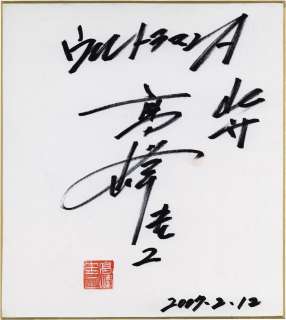 ウルトラマンA
高峰圭二
2007.2.12